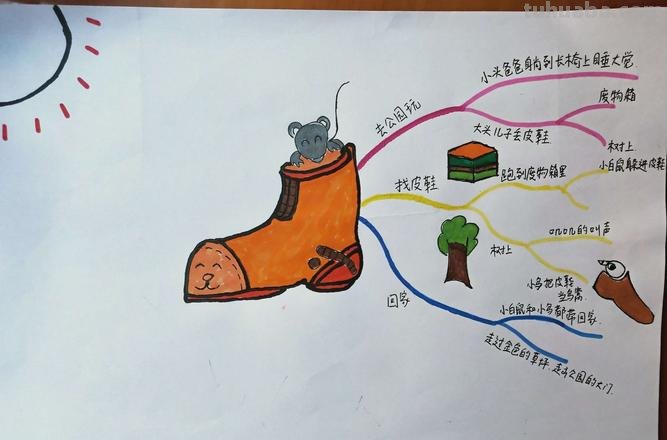 tuhuaba.com
小头爸爸躺到长椅上睡大觉
去公园玩
废物箱
大头儿子丢皮鞋
树上
小白鼠躲进皮鞋
找皮鞋
跑到废物箱里
叽叽的叫声
树上
小鸟把皮鞋
当鸟窝
回家
小白鼠和小鸟都带回家
走过金色的草坪.走出公园的大门